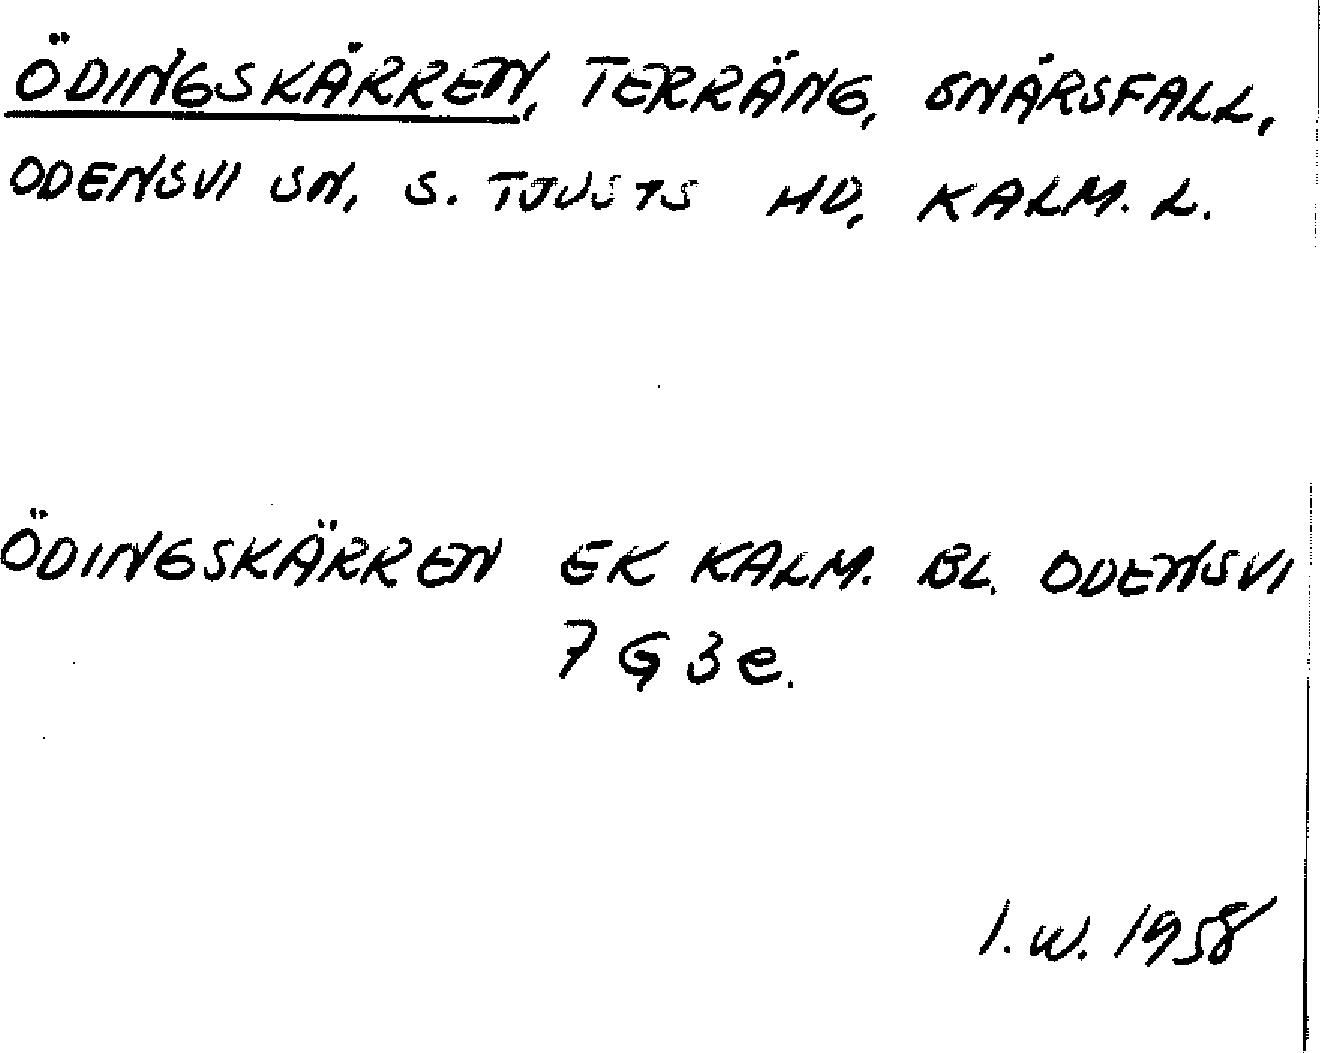 ÖDINGSKÄRREN, TERRÄNG, SNÅRSFALL,
ODENSVI SN, S. TJUSTS HD, KALM. L.
ÖDINGSKÄRREN EK KALM. BL. ODENSVI
7 G 3 e.
I. W. 1958